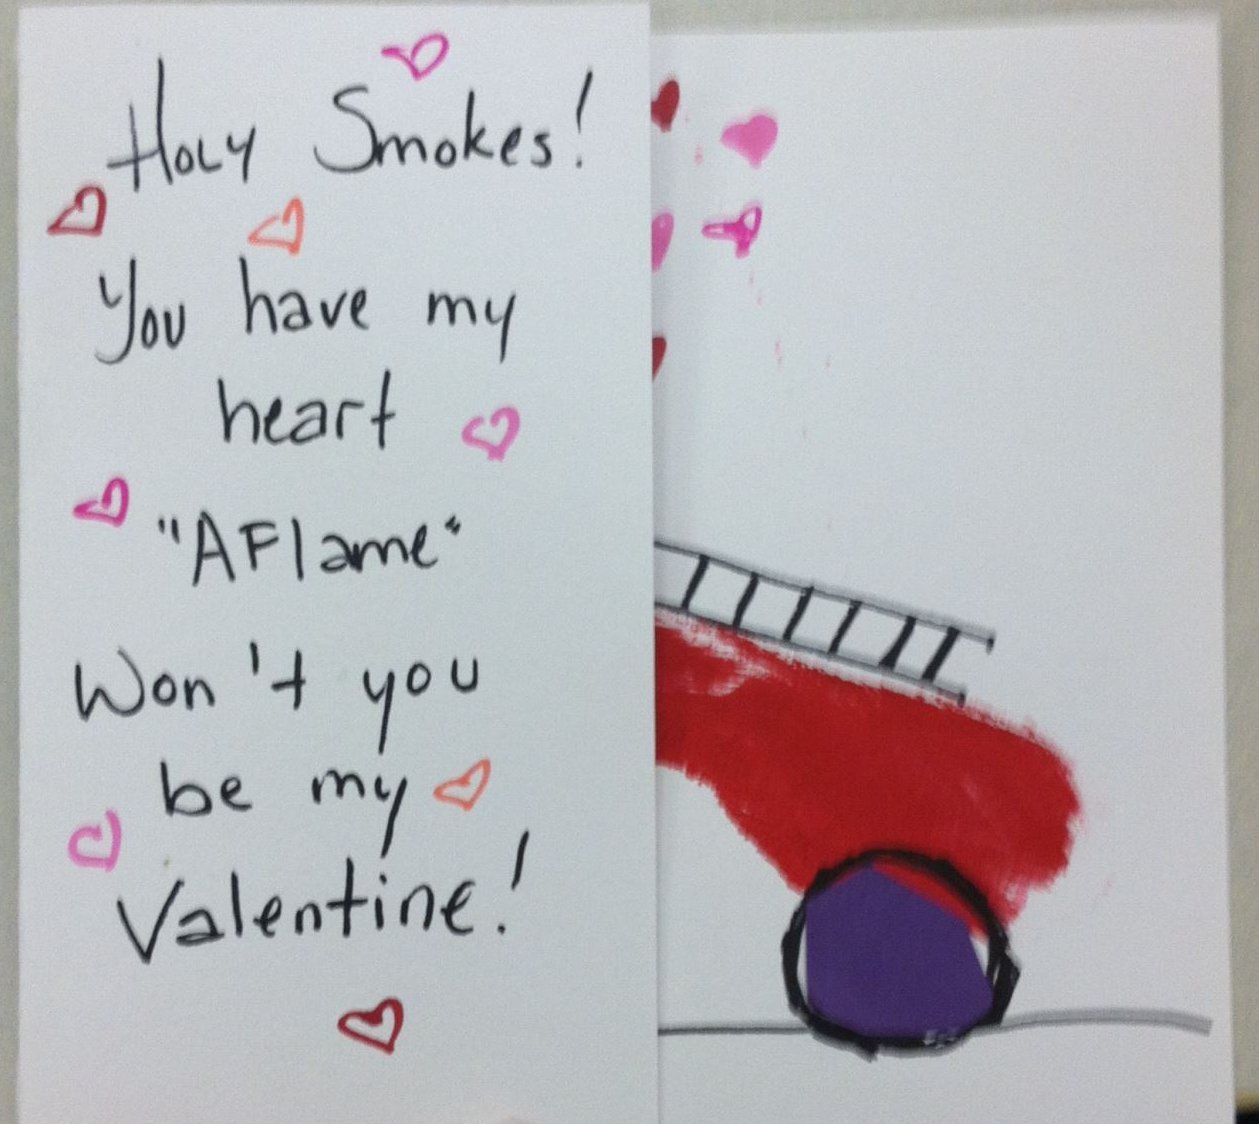 Holy Smokes!
You have my
heart
"AFlame"
Won't you
be my
Valentine!